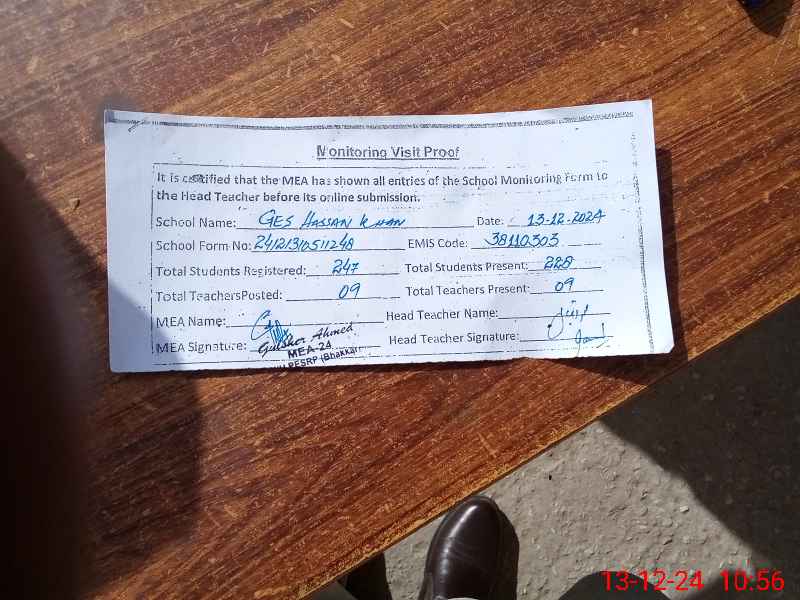 Monitoring Visit Proof
It is certified that the MEA has shown all entries of the School Monitoring Form to
the Head Teacher before its online submission.
School Name: GES HASSAN KHAN Date: 13-12-2024
School Form No: 24121310511248 EMIS Code: 38110303
Total Students Registered: 247 Total Students Present: 228
Total TeachersPosted: 09 Total Teachers Present: 09
MEA Name: Head Teacher Name:
MEA Signature: Gulsher Ahmed Head Teacher Signature:
MEA-24
PESRP (Bhakkar)
13-12-24 10:56